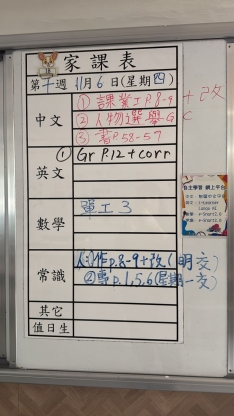 家課表
第十週 11月6日(星期四)
中文
① 課業工P.8-9+改
② 人物選舉G
③ 書P.58-57
英文
① Gr P.12+corr
數學
單工3
常識
作p.8-9+改(明交)
② 專p.1,5,6(星期一交)
其它
值日生
自主學習 網上平台